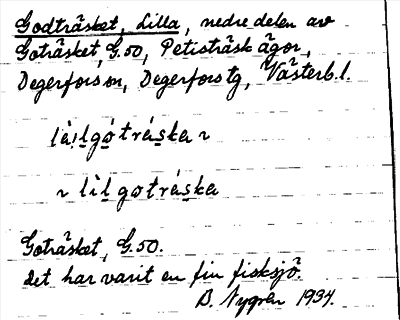 Godträsket, Lilla, nedre delen av
Goträsket, G.50, Petisträsk ägor,
Degerfors sn, Degerfors tg, Västerb.l.
la̍i̯lgo̍tra̍ska ~
~ li̍l gotra̍ska
Goträsket, G.50.
det har varit en fin fisksjö.
B. Nygren 1934.